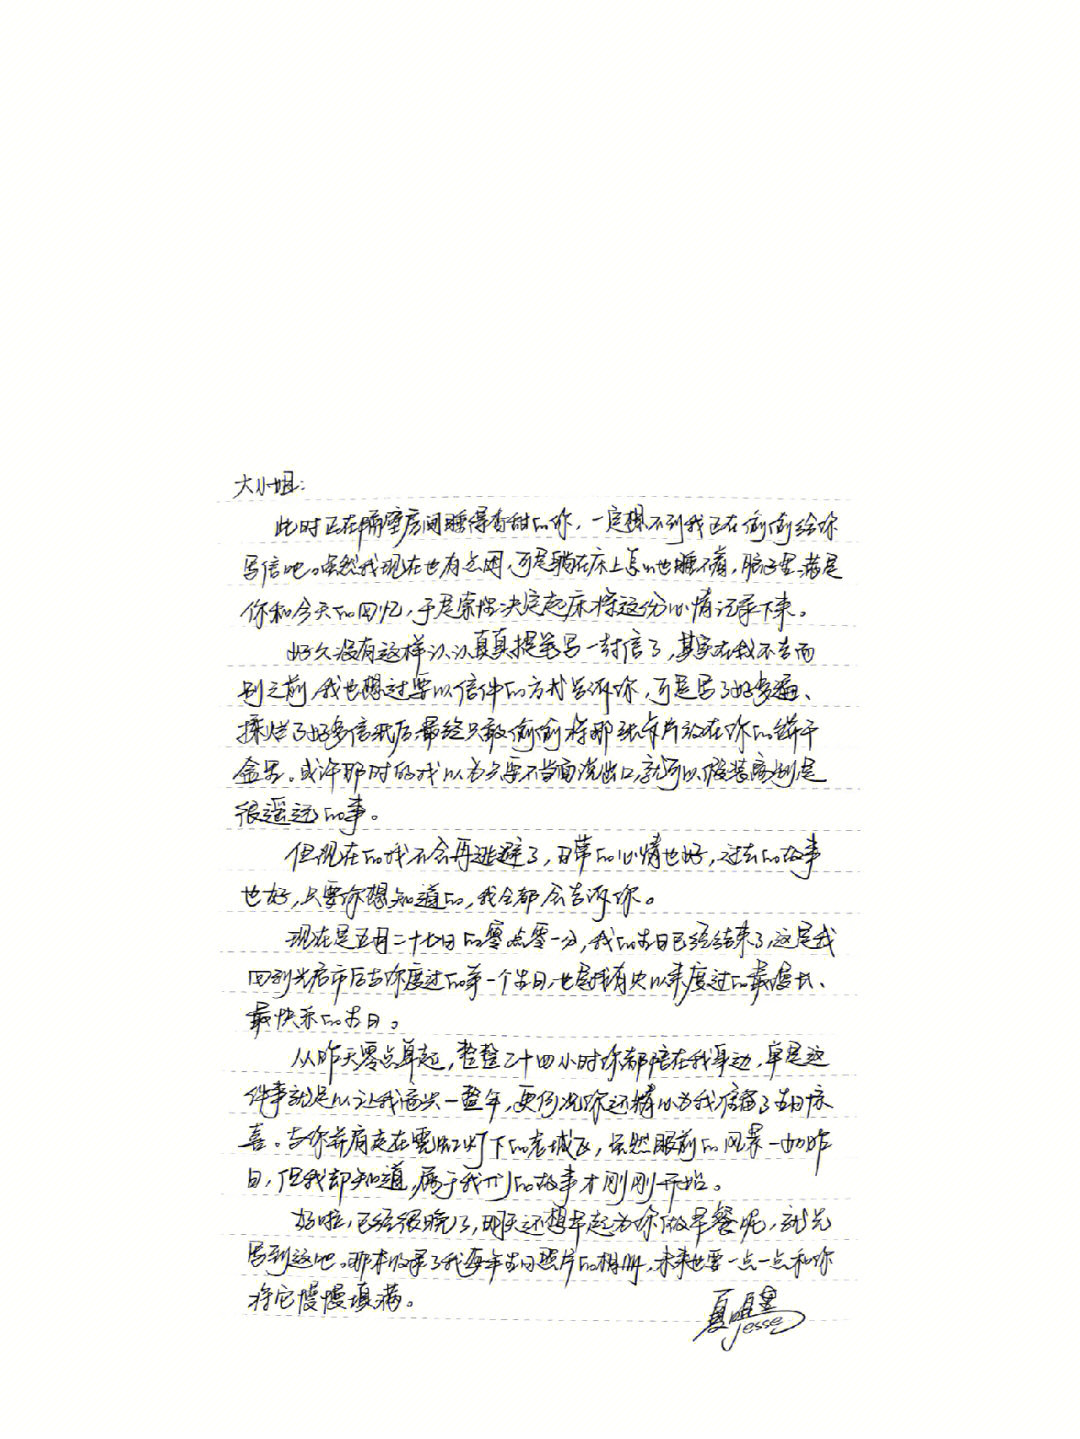 大小姐：
此时正在隔壁房间睡得香甜的你，一定想不到我正在偷偷给你
写信吧。虽然我现在也有点困，可是躺在床上怎么也睡不着，脑子里满是
你和今天的回忆，于是索性决定起床将这份心情记录下来。
好久没有这样认认真真提笔写一封信了，其实在我不告而
别之前，我也想过要以信件的方式告诉你，可是写了好多遍、
揉烂了好多信纸后，最终只敢偷偷将那张卡片放在你的饼干
盒里。或许那时的我以为只要不当面说出口，就可以假装离别是
很遥远的事。
但现在的我不会再逃避了，日常的心情也好，过去的故事
也好，只要你想知道的，我全都会告诉你。
现在是五月二十七日的零点零一分，我的生日已经结束了，这是我
回到光启市后与你度过的第一个生日，也是我有史以来度过的最漫长、
最快乐的生日。
从昨天零点算起，整整二十四小时你都陪在我身边，单是这
件事就足以让我高兴一整年，更何况你还精心为我准备了生日惊
喜。与你并肩走在霓虹灯下的老城区，虽然眼前的风景一如昨
日，但我却知道，属于我们的故事才刚刚开始。
好啦，已经很晚了，明天还想早起为你做早餐呢，就先
写到这吧。那本收录了我每年生日照片的相册，未来也要一点一点和你
将它慢慢填满。
夏鸣星
Jesse